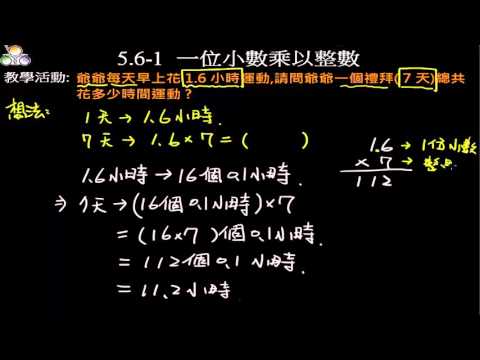 5.6-1 一位小數乘以整數
教學活動: 爺爺每天早上花 1.6 小時運動,請問爺爺一個禮拜( 7 天)總共
花多少時間運動？
想法:
1天→1.6小時.
7天→1.6×7=( )
1.6小時→16個0.1小時.
⇒ 7天→(16個0.1小時)×7
=(16×7)個0.1小時.
=112個0.1小時.
=11.2小時.
1.6→1位小數
× 7→整數
112